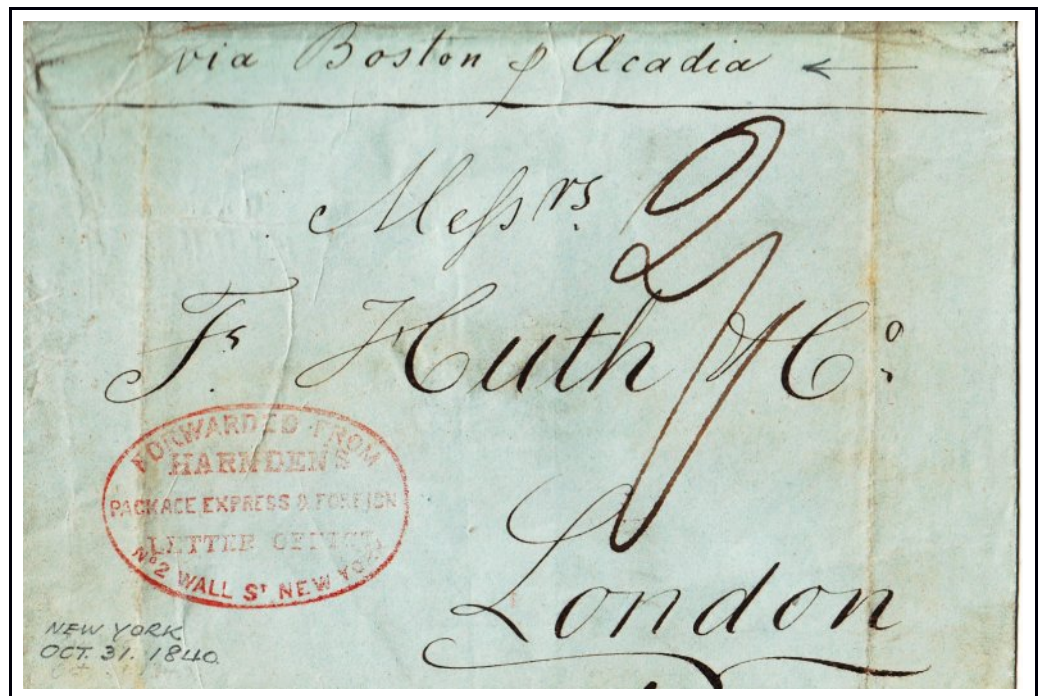 via Boston p Acadia
Messrs
2/
Fs Huth & Co.
FORWARDED FROM
HARNDEN'S
PACKAGE EXPRESS & FOREIGN
LETTER OFFICE
No 2 WALL ST NEW YORK
London
NEW YORK
OCT. 31. 1840